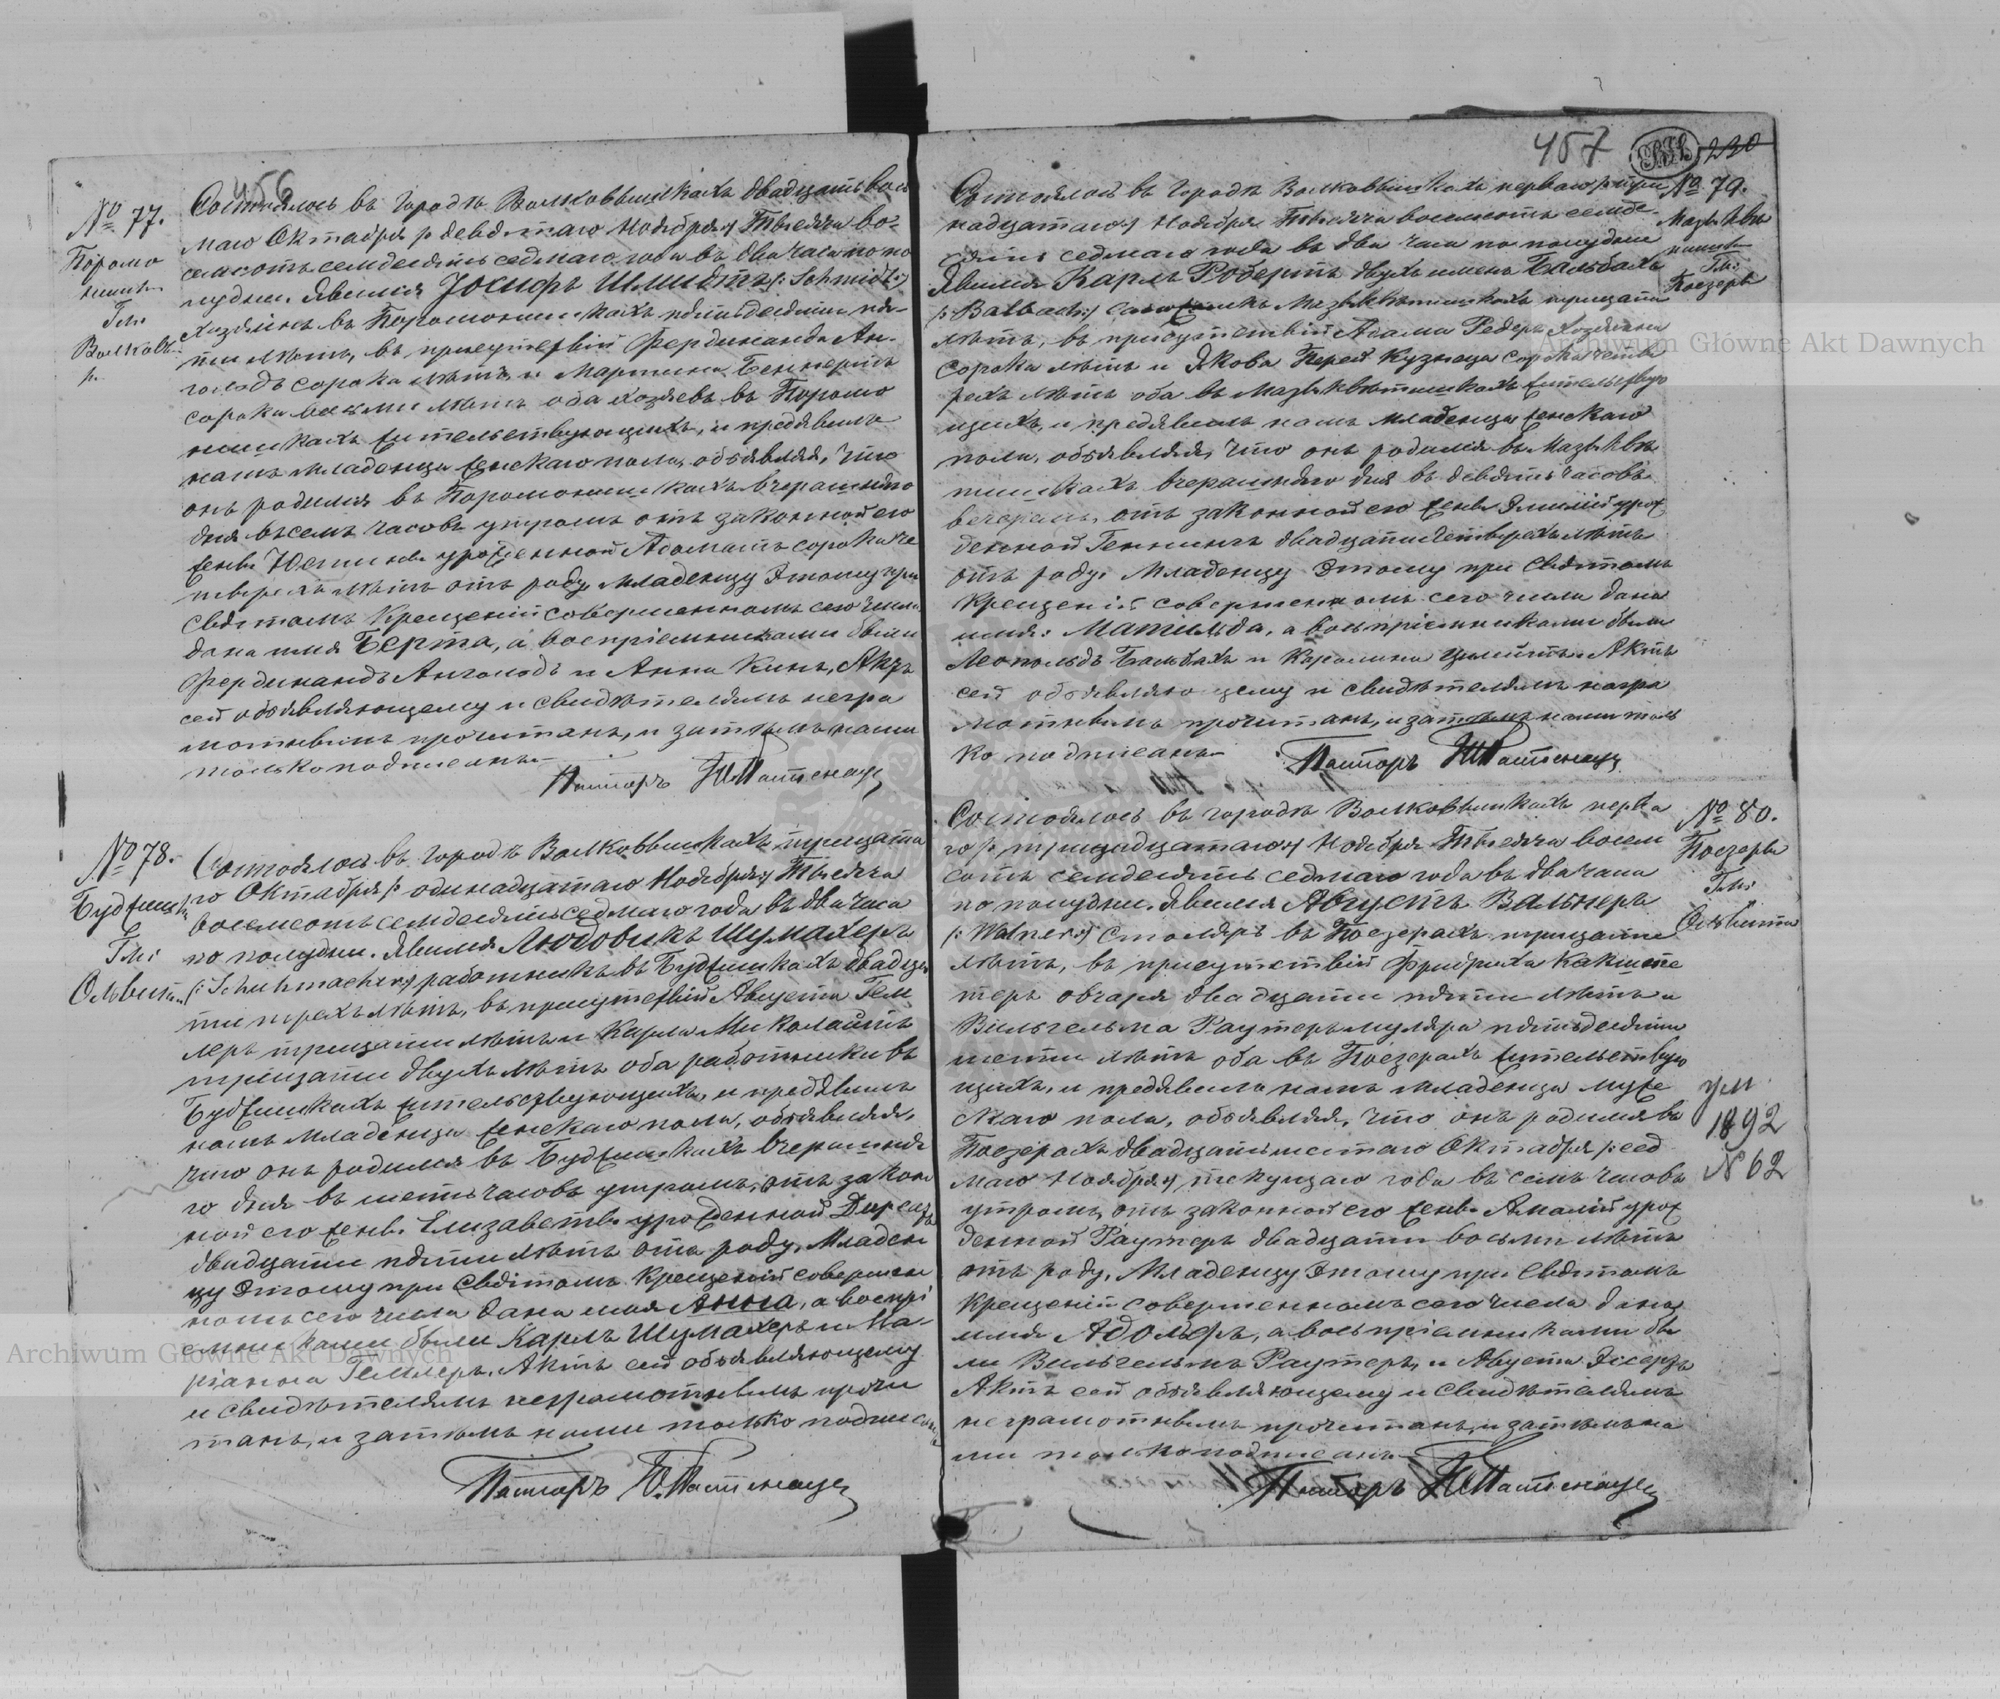 456
№ 77.
Поромо
нишки
Гм:
Состоялось въ городѣ Волковышкахъ двадцать вось
маго Октября /: девятаго Ноября :/ Тысяча во-
семсотъ семдесятъ седмаго года въ два часа по по
лудни. Явился Іосифъ Шмидтъ /: Schmidt :/
хозяинъ въ Поромонишкахъ пятьдесяти пя-
ти лѣтъ, въ присутствіи Фердинанда Ан-
гольдъ сорока лѣтъ и Мартина
сорока восьми лѣтъ оба хозяевъ въ Поромо
нишкахъ жительствующихъ, и предявилъ
намъ младенца женскаго пола, объявляя, что
онъ родился въ Поромонишкахъ вчерашняго
дня въ семь часовъ утромъ отъ законной его
жены Юстины урожденной Адоматъ сорока че
тверехъ лѣтъ отъ роду. Младенцу Этому при
Святомъ Крещеніи совершенномъ сего числа
дано имя Берта, а воспріемниками были
Фердинандъ Ангольдъ и Анна Кинъ, Актъ
сей объявляющему и свидѣтелямъ негра
мотнымъ прочитанъ, и затѣмъ нами
только подписанъ.
Пасторъ
№ 78.
Будѣжишки
Гм:
Ольвита
Состоялось въ городѣ Волковышкахъ тридцата
го Октября /: одинадцатаго Ноября :/ Тысяча
восемсотъ семдесятъ седмаго года въ два часа
по полудни. Явился Людовикъ Шумахеръ
/: Schuhmacher :/ работникъ въ Будежишкахъ двадца
ти трехъ лѣтъ, въ присутствіи Августа Гем
леръ тридцати лѣтъ и Карла Миколайтъ
тридцати двухъ лѣтъ оба работники въ
Будежишкахъ жительствующихъ, и предявилъ
намъ младенца женскаго пола, объявляя,
что онъ родился въ Будежишкахъ вчерашня
го дня въ шесть часовъ утромъ, отъ закон
ной его жены Елизаветы урожденной
двадцати пяти лѣтъ отъ роду. Младен
цу Этому при Святомъ Крещеніи совершен
номъ сего числа дано имя Анна, а воспрі
емниками были Карлъ Шумахеръ и Ма-
ріанна Гемлеръ, Актъ сей объявляющему
и свидѣтелямъ неграмотнымъ прочи
танъ, и затѣмъ нами только подписанъ
Пасторъ
457
230
№ 79.
Гм:
Поезеры
Состоялось въ городѣ Волковышкахъ перваго /: три
надцатаго :/ Ноября Тысяча восемсотъ семде-
сятъ седмаго года въ два часа по полудни
Явился Карлъ Робертъ двухъ именъ Бальбахъ
/: Balbach :/ тридцати
лѣтъ, въ присутствіи Адама Редеръ хозяина
сорока лѣтъ и Якова Перей кузнеца сорока четы
рехъ лѣтъ оба въ жительствую
щихъ, и предявилъ намъ младенца женскаго
пола, объявляя, что онъ родился въ
вчерашняго дня въ девять часовъ
вечеромъ, отъ законной его жены Эмиліи урож
денной Геннингъ двадцати четырехъ лѣтъ
отъ роду. Младенцу Этому при Святомъ
Крещеніи совершенномъ сего числа дано
имя: Матильда, а воспріемниками были
Леопольдъ Бальбахъ и Каролина Шмитъ. Актъ
сей объявляющему и свидѣтелямъ негра
мотнымъ прочитанъ, и затѣмъ нами толь
ко подписанъ.
Пасторъ
№ 80.
Поезеры
Гм:
Ольвита
Состоялось въ городѣ Волковышкахъ перва
го /: тринадцатаго :/ Ноября Тысяча восем
сотъ семдесятъ седмаго года въ два часа
по полудни. Явился Августъ Вальнеръ
/: Walner :/ столяръ въ Поезерахъ тридцати
лѣтъ, въ присутствіи Фридриха
теръ овчаря двадцати пяти лѣтъ и
Вильгельма Раутеръ муляра пятьдесяти
шести лѣтъ оба въ Поезерахъ жительствую
щихъ, и предявилъ намъ младенца муже
скаго пола, объявляя, что онъ родился въ
Поезерахъ двадцать шестаго Октября /: сед
маго Ноября :/ текущаго года въ семь часовъ
утромъ, отъ законной его жены Амаліи урож
денной Раутеръ двадцати восьми лѣтъ
отъ роду, Младенцу Этому при Святомъ
Крещеніи совершенномъ сего числа дано
имя Адольфъ, а воспріемниками бы
ли Вильгельмъ Раутеръ, и Августа
Актъ сей объявляющему и свидѣтелямъ
неграмотнымъ прочитанъ, и затѣмъ на
ми только подписанъ.
Пасторъ
ум
1892
N 62
Archiwum Główne Akt Dawnych
Archiwum Główne Akt Dawnych